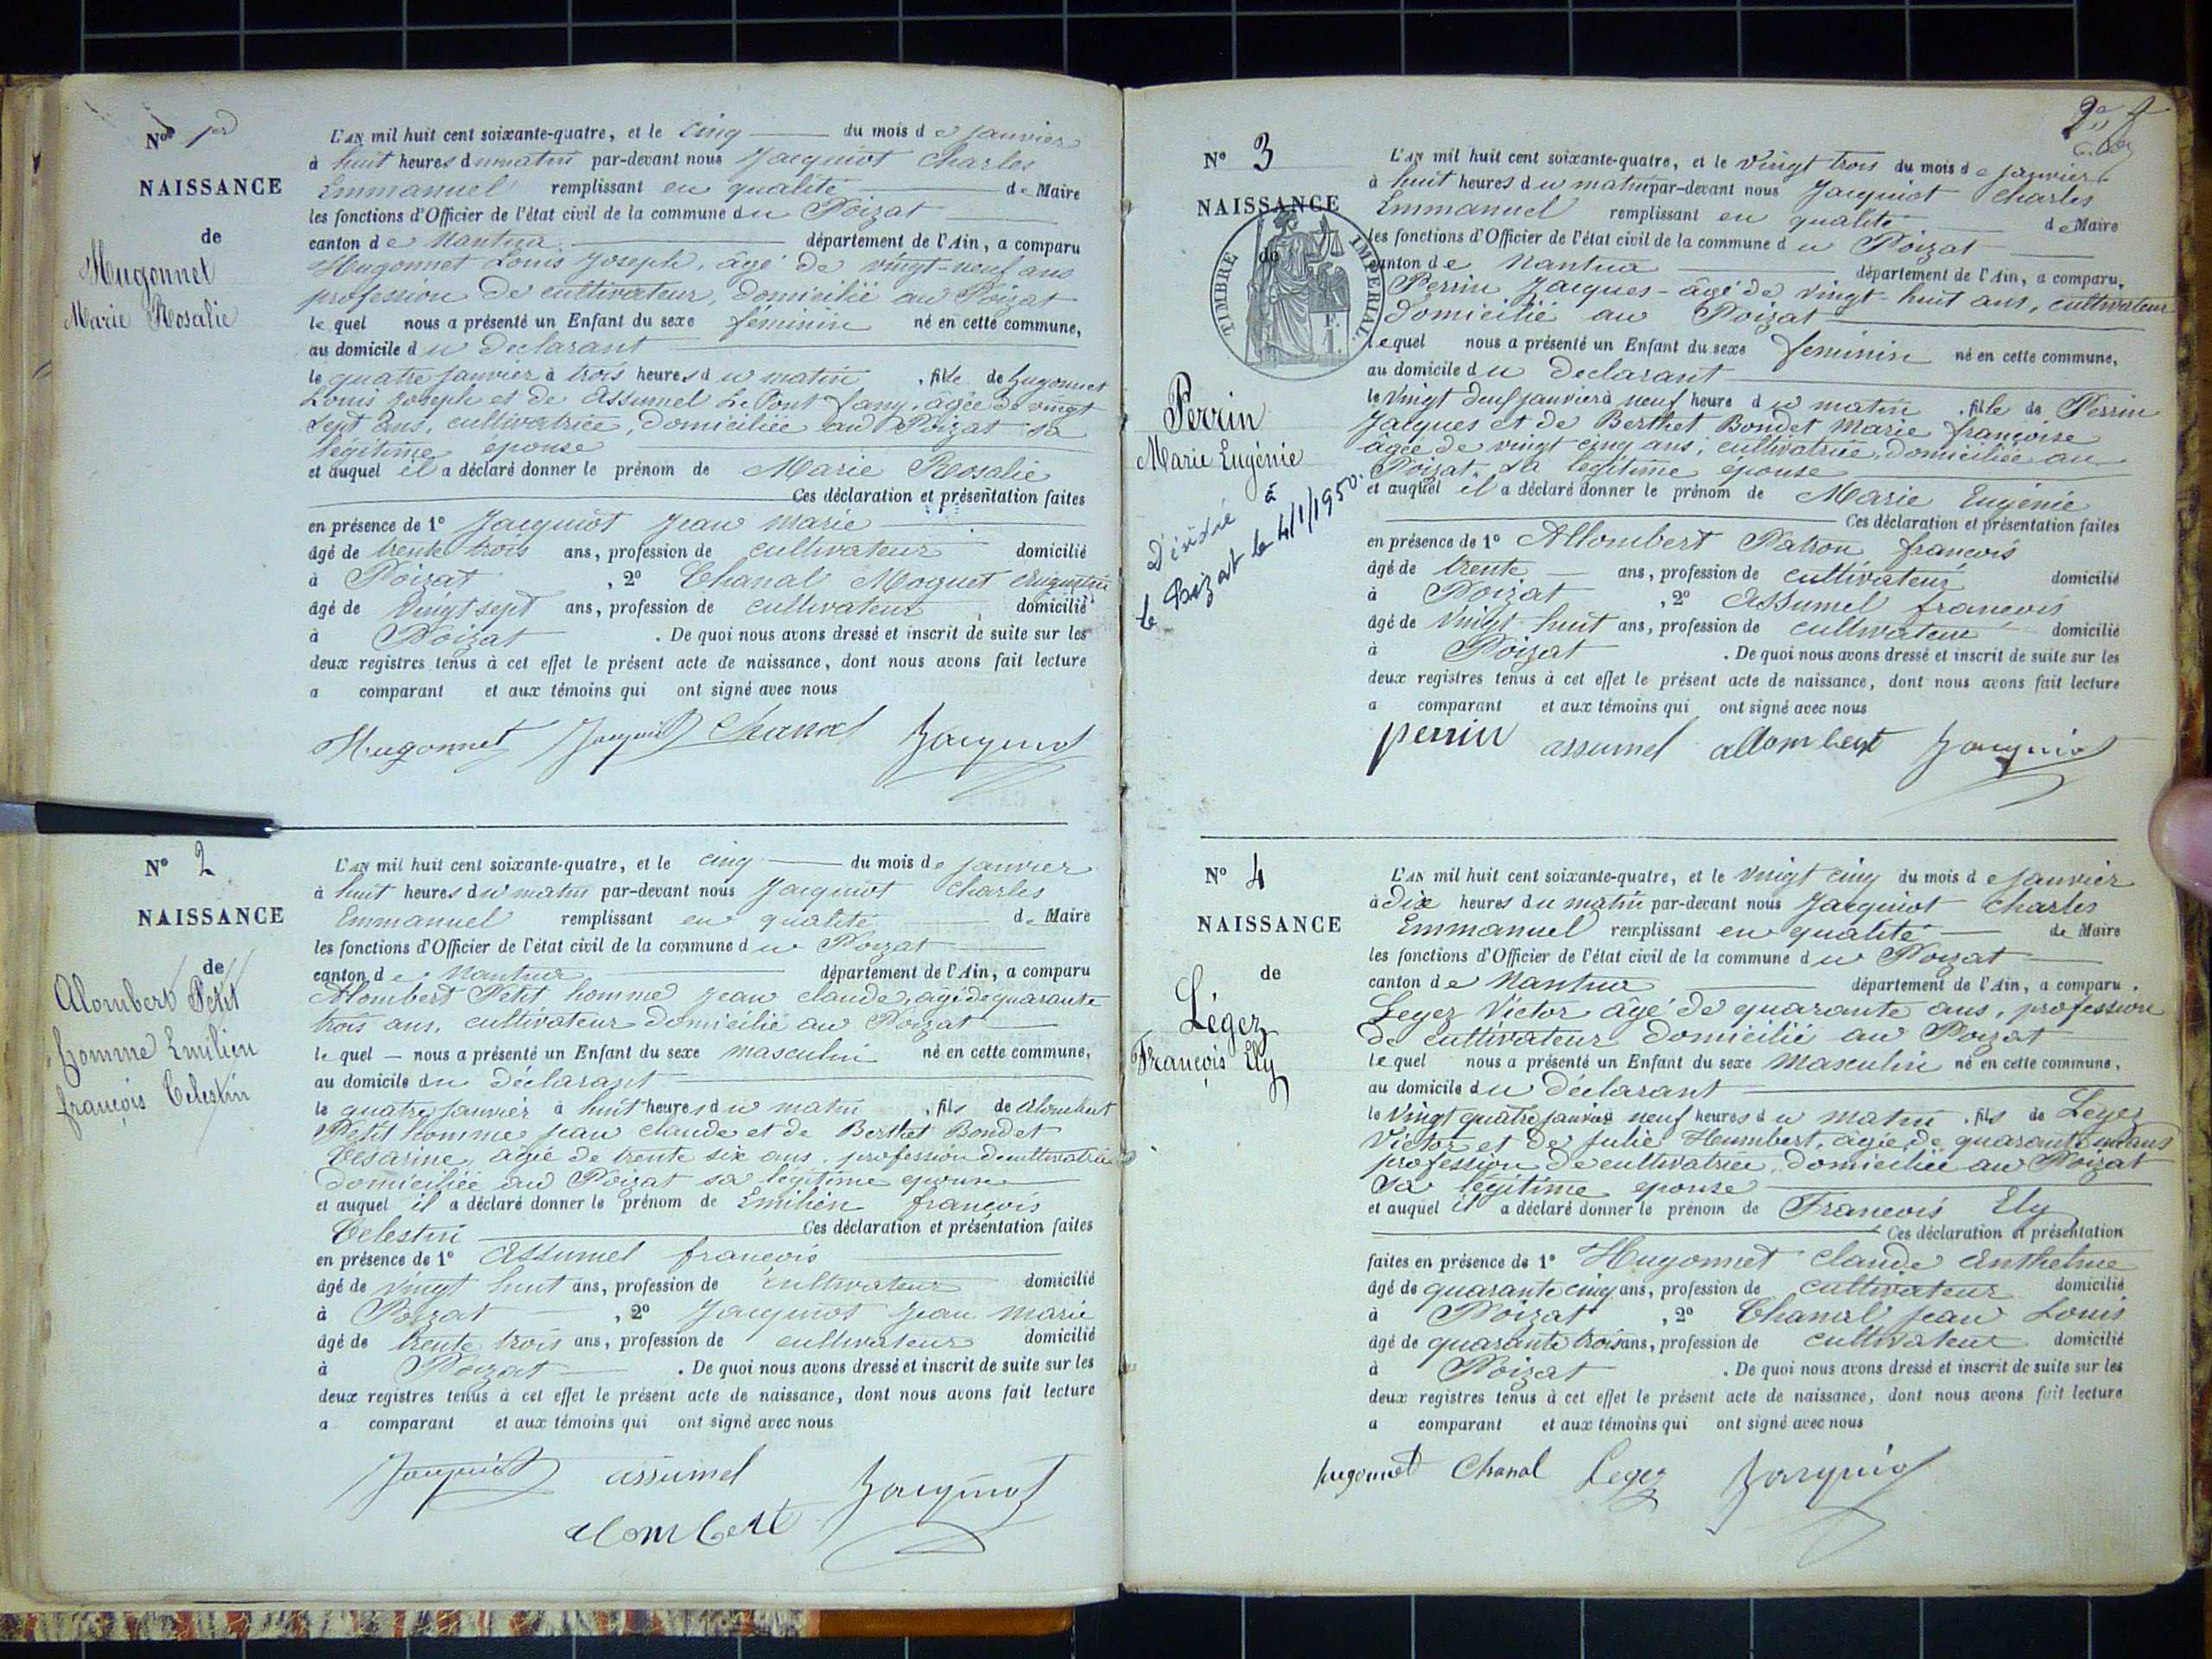 N° 1er
NAISSANCE
de
Hugonnet
Marie Rosalie
L'AN mil huit cent soixante-quatre, et le cinq du mois de janvier
à huit heures du matin par-devant nous Jacquiot Charles
Emmanuel remplissant en qualité de Maire
les fonctions d'Officier de l'état civil de la commune du Poizat
canton de Nantua département de l'Ain, a comparu
Hugonnet Louis Joseph, âgé de vingt-neuf ans
profession de cultivateur, domicilié au Poizat
le quel nous a présenté un Enfant du sexe féminin né en cette commune,
au domicile du declarant
le quatre janvier à trois heures du matin, fille de hugonnet
Louis Joseph et de Assumel Le Pont fany, âgée de vingt
sept ans, cultivatrice, domiciliée au Poizat sa
légitime épouse
et auquel il a déclaré donner le prénom de Marie Rosalie
Ces déclaration et présentation faites
en présence de 1° Jacquiot Jean Marie
âgé de trente trois ans, profession de cultivateur domicilié
à Poizat, 2° Chanal Moquet Augustin
âgé de Vingt sept ans, profession de cultivateur, domicilié
à Poizat. De quoi nous avons dressé et inscrit de suite sur les
deux registres tenus à cet effet le présent acte de naissance, dont nous avons fait lecture
a comparant et aux témoins qui ont signé avec nous
Hugonnet Jacquiot Chanal Jacquiot
N° 2
NAISSANCE
de
Alombert Petit
homme Emilien
françois Celestin
L'AN mil huit cent soixante-quatre, et le cinq du mois de janvier
à huit heures du matin par-devant nous Jacquiot Charles
Emmanuel remplissant en qualité de Maire
les fonctions d'Officier de l'état civil de la commune du Poizat
canton de Nantua département de l'Ain, a comparu
Alombert Petit homme Jean claude, âgé de quarante
trois ans, cultivateur domicilié au Poizat
le quel nous a présenté un Enfant du sexe masculin né en cette commune,
au domicile du déclarant
le quatre janvier à huit heures du matin, fils de alombert
Petit homme jean claude et de Berthet Bondet
Cesarine, agée de trente six ans, profession de cultivatrice
domiciliée au Poizat sa légitime epouse
et auquel il a déclaré donner le prénom de Emilien françois
Celestin Ces déclaration et présentation faites
en présence de 1° Assumel françois
âgé de vingt huit ans, profession de cultivateur domicilié
à Poizat, 2° Jacquiot Jean Marie
âgé de trente trois ans, profession de cultivateur domicilié
à Poizat. De quoi nous avons dressé et inscrit de suite sur les
deux registres tenus à cet effet le présent acte de naissance, dont nous avons fait lecture
a comparant et aux témoins qui ont signé avec nous
Jacquiot assumel Jacquiot
alombert
N° 3
NAISSANCE
de
TIMBRE IMPERIAL
1 F.
Perrin
Marie Eugénie
Décédée à
le Poizat le 4/1/1950.
L'AN mil huit cent soixante-quatre, et le Vingt trois du mois de janvier
à huit heures du matin par-devant nous Jacquiot Charles
Emmanuel remplissant en qualité de Maire
les fonctions d'Officier de l'état civil de la commune du Poizat
canton de Nantua département de l'Ain, a comparu,
Perrin Jacques - âgé de vingt-huit ans, cultivateur
domicilié au Poizat
Lequel nous a présenté un Enfant du sexe feminin né en cette commune,
au domicile du declarant
le Vingt deux janvier à neuf heure du matin, fille de Perrin
Jacques et de Berthet Bondet Marie françoise
âgée de vingt cinq ans, cultivatrice, domiciliée au
Poizat, sa légitime épouse
et auquel il a déclaré donner le prénom de Marie Eugénie
Ces déclaration et présentation faites
en présence de 1° Allombert Patron françois
âgé de trente ans, profession de cultivateur domicilié
à Poizat, 2° Assumel françois
âgé de Vingt-huit ans, profession de cultivateur domicilié
à Poizat. De quoi nous avons dressé et inscrit de suite sur les
deux registres tenus à cet effet le présent acte de naissance, dont nous avons fait lecture
a comparant et aux témoins qui ont signé avec nous
perrin assumel allombert Jacquiot
N° 4
NAISSANCE
de
Légez
François Ely
L'AN mil huit cent soixante-quatre, et le Vingt cinq du mois de janvier
à Dix heures du matin par-devant nous Jacquiot Charles
Emmanuel remplissant en qualité de Maire
les fonctions d'Officier de l'état civil de la commune du Poizat
canton de Nantua département de l'Ain, a comparu.
Legez Victor âgé de quarante ans, profession
de cultivateur domicilié au Poizat
lequel nous a présenté un Enfant du sexe Masculin né en cette commune,
au domicile du déclarant
le Vingt quatre janvier à neuf heures du matin, fils de Légez
Victor et de Julie Humbert, agée de quarante un ans
profession de cultivatrice, domiciliée au Poizat
sa légitime epouse
et auquel il a déclaré donner le prénom de François Ely
Ces déclaration et présentation
faites en présence de 1° Hugonnet Claude Anthelme
âgé de quarante cinq ans, profession de cultivateur domicilié
à Poizat, 2° Chanal Jean Louis
âgé de quarante trois ans, profession de cultivateur domicilié
à Poizat. De quoi nous avons dressé et inscrit de suite sur les
deux registres tenus à cet effet le présent acte de naissance, dont nous avons fait lecture
a comparant et aux témoins qui ont signé avec nous
hugonnet Chanal Legez Jacquiot